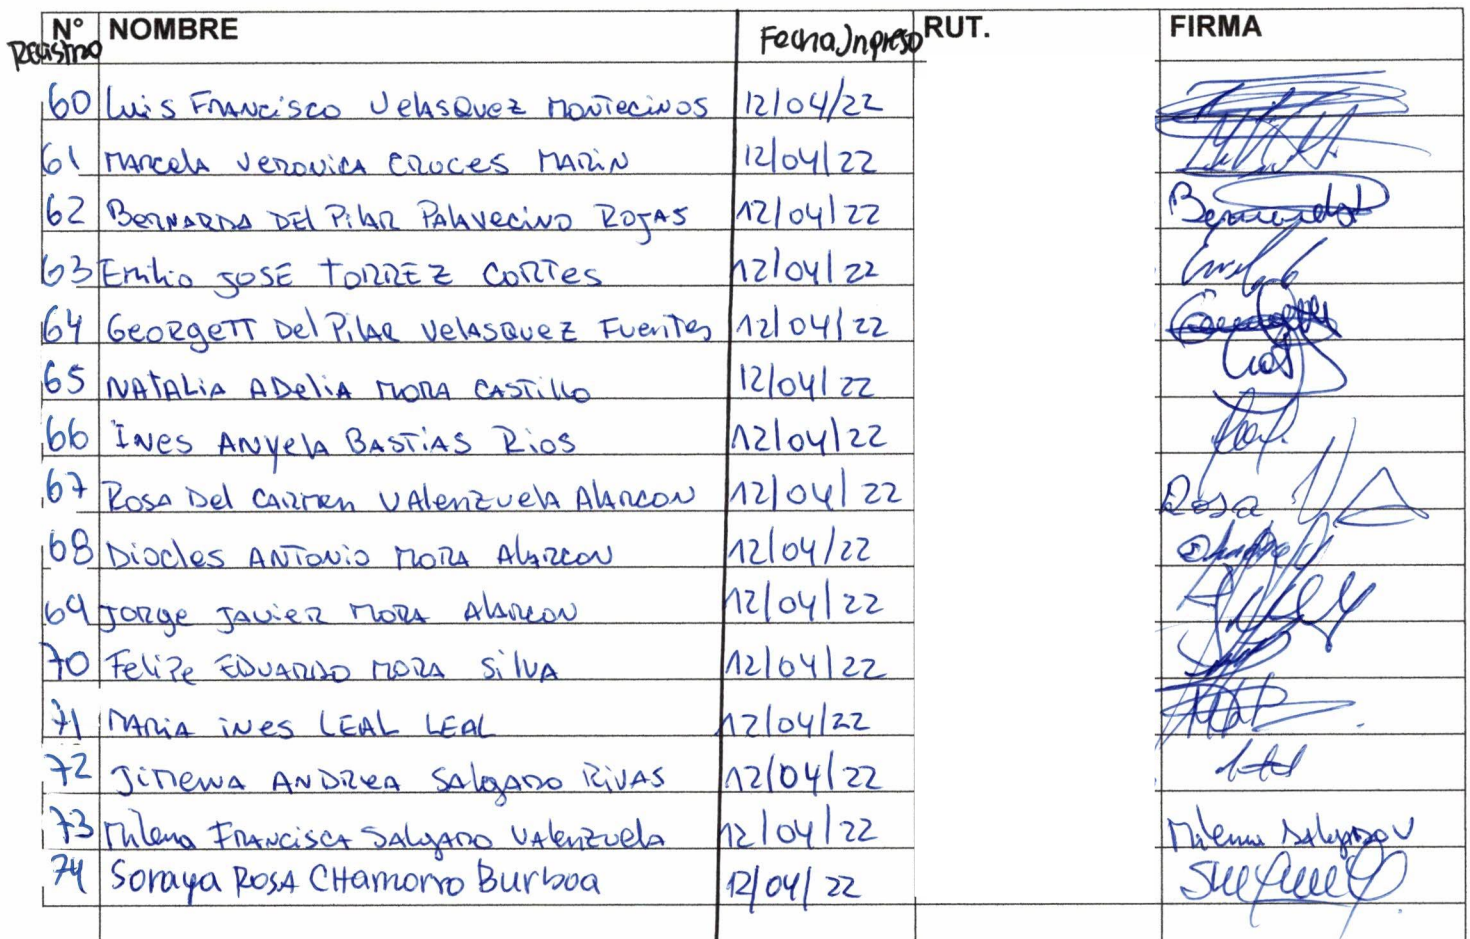 N° Registro NOMBRE Fecha Ingreso RUT. FIRMA
60 Luis Francisco Velasquez Montecinos 12/04/22
61 Marcela Veronica Cruces Marin 12/04/22
62 Bernarda Del Pilar Palavecino Rojas 12/04/22 Bernarda
63 Emilio Jose Torrez Cortes 12/04/22
64 Georgett Del Pilar Velasquez Fuentes 12/04/22
65 Natalia Adelia Mora Castillo 12/04/22
66 Ines Anyela Bastias Rios 12/04/22
67 Rosa Del Carmen Valenzuela Alarcon 12/04/22 Rosa V A
68 Diocles Antonio Mora Alarcon 12/04/22
69 Jorge Javier Mora Alarcon 12/04/22
70 Felipe Eduardo Mora Silva 12/04/22
71 Maria Ines LEAL LEAL 12/04/22
72 Jimena Andrea Salgado Rivas 12/04/22
73 Milena Francisca Salgado Valenzuela 12/04/22 Milena Salgado V
74 Soraya Rosa Chamorro Burboa 12/04/22